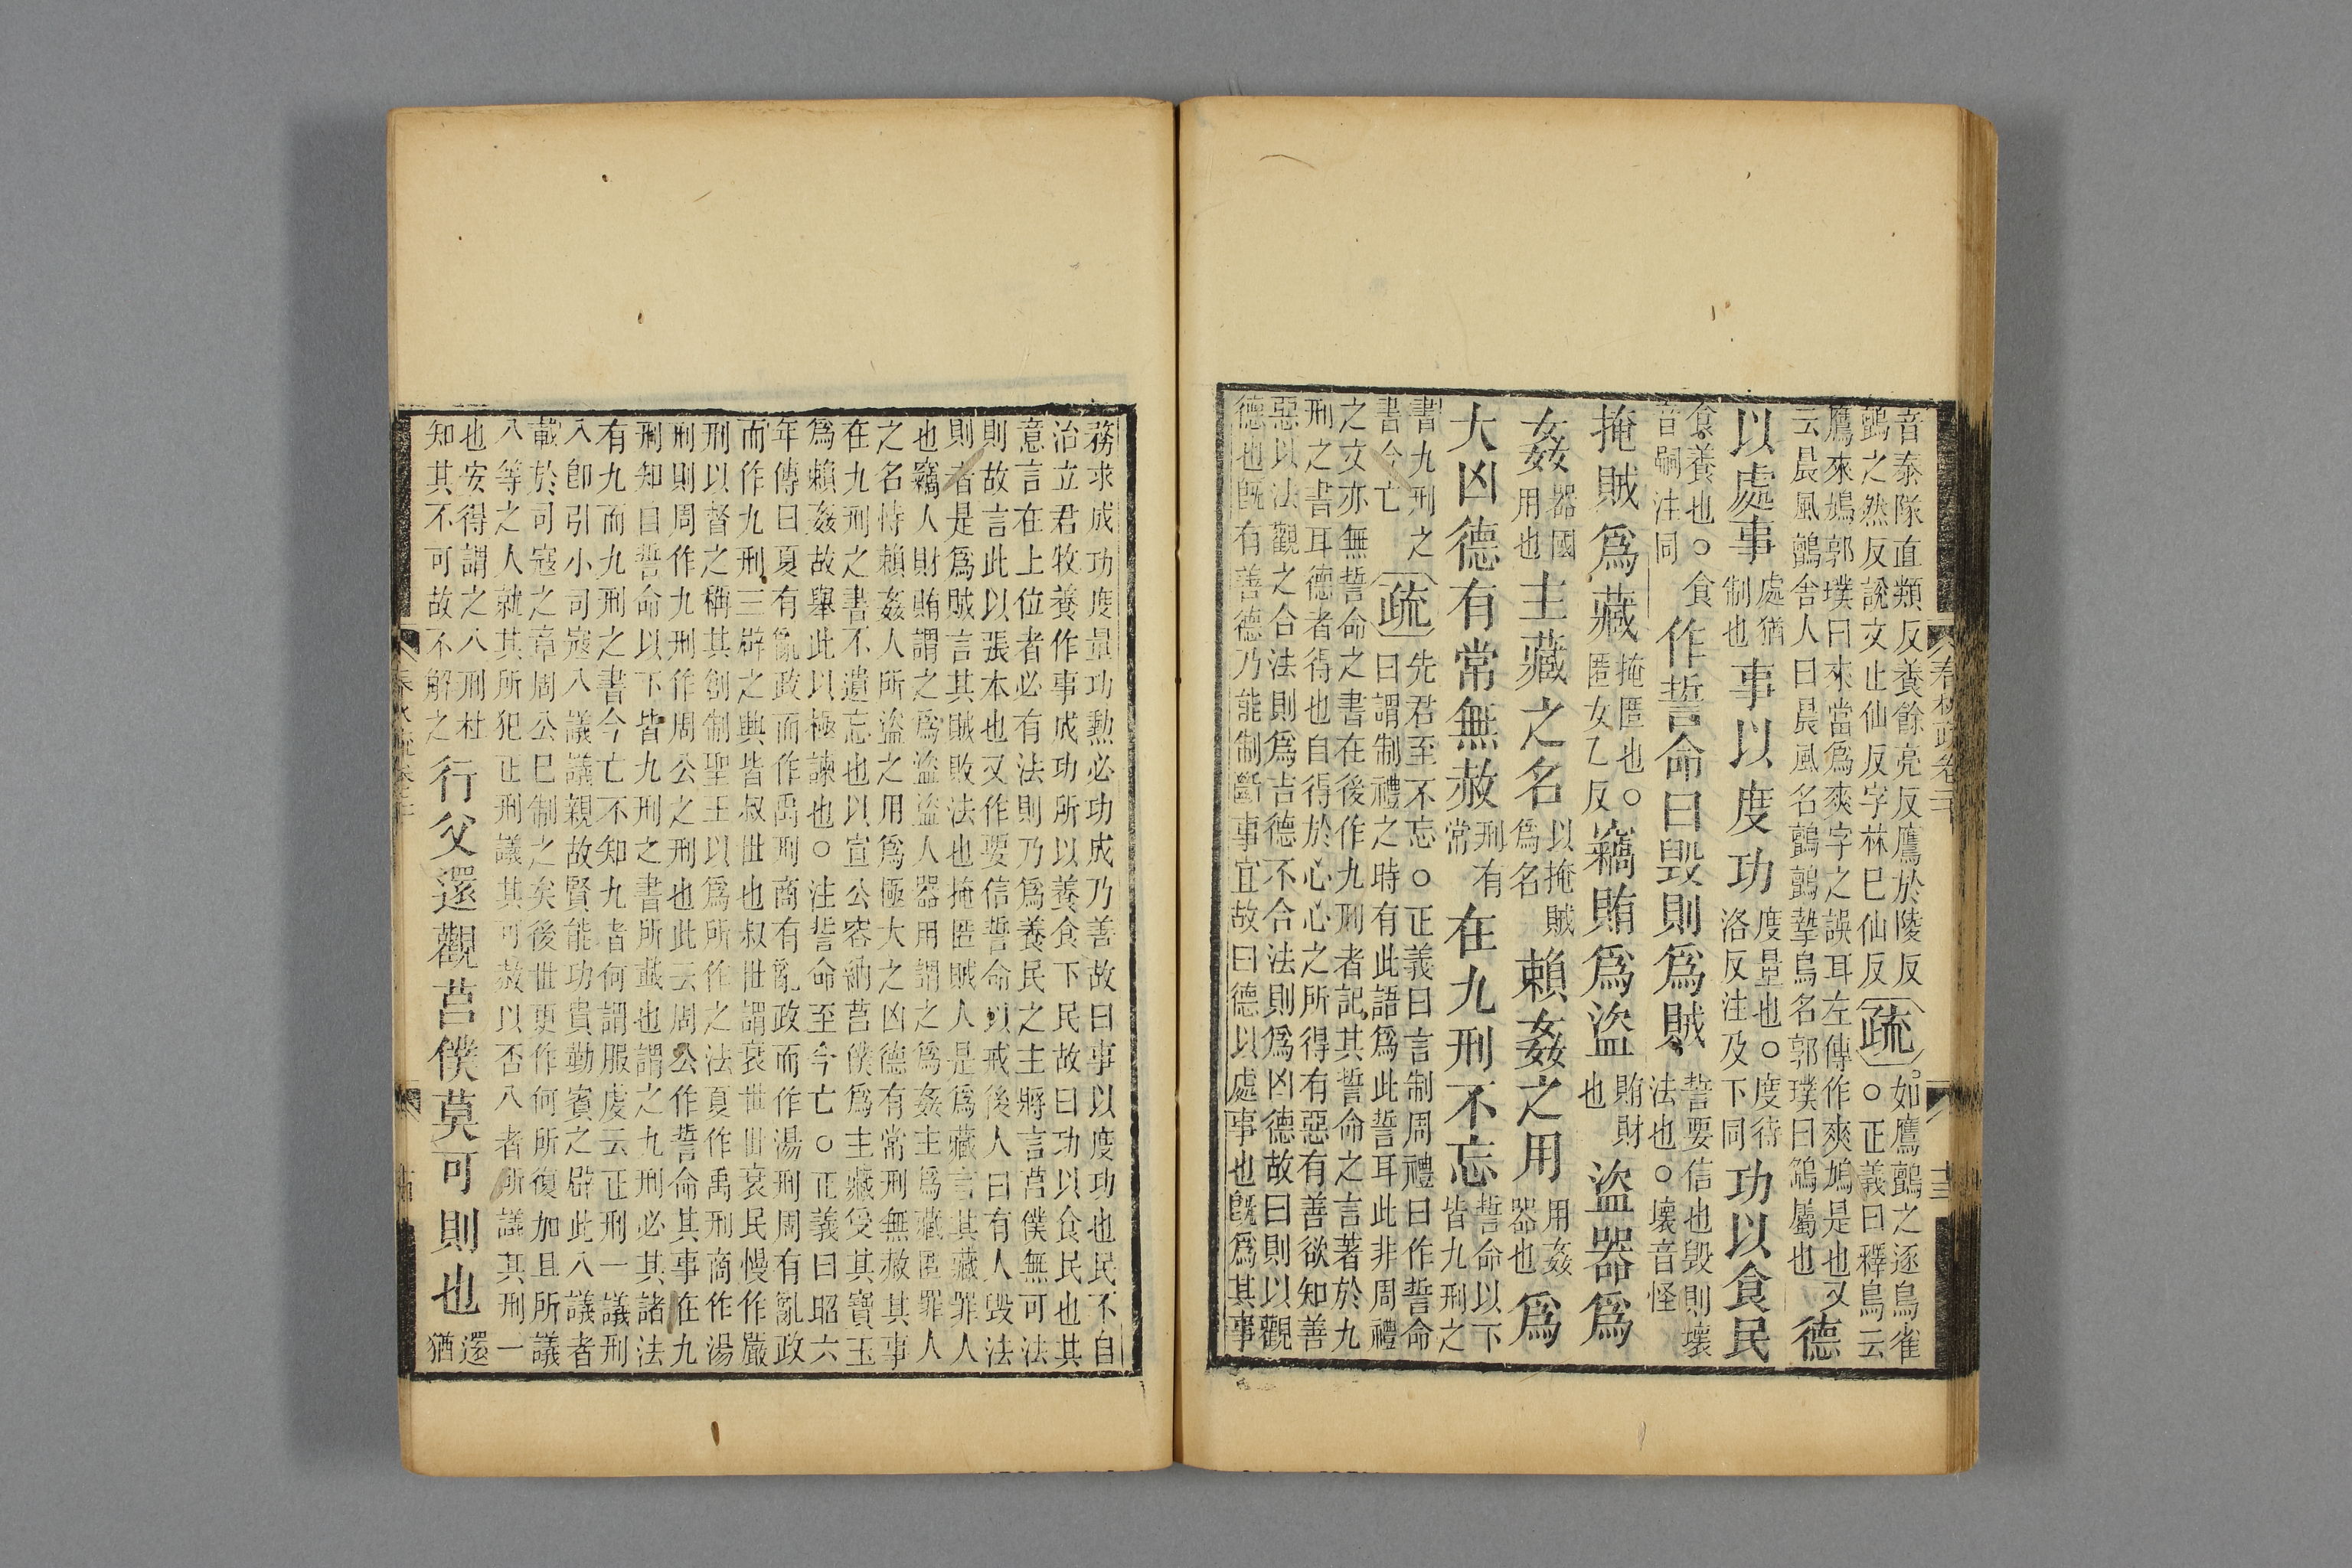 音泰隊直類反養餘亮反鷹於陵反鸇之然反說文止仙反字林巳仙反疏如鷹鸇之逐鳥雀〇正義曰釋鳥云
鷹來鳩郭璞曰來當爲爽字之誤耳左傳作爽鳩是也又
云晨風鸇舍人曰晨風名鸇鸇摯鳥名郭璞曰鷂屬也德
以處事處猶制也事以度功度量也〇度待洛反注及下同功以食民
食養也〇食音嗣注同作誓命曰毀則爲賊誓要信也毀則壞法也〇壞音怪
掩賊爲藏掩匿也〇匿女乙反竊賄爲盜賄財也盜器爲
姦器國用也主藏之名以掩賊爲名賴姦之用用姦器也爲
大凶德有常無赦刑有常在九刑不忘誓命以下皆九刑之
書九刑之書今亡疏先君至不忘〇正義曰言制周禮曰作誓命曰謂制禮之時有此語爲此誓耳此非周禮
之文亦無誓命之書在後作九刑者記其誓命之言著於九
刑之書耳德者得也自得於心心之所得有惡有善欲知善
惡以法觀之合法則爲吉德不合法則爲凶德故曰則以觀
德也既有善德乃能制斷事宜故曰德以處事也既爲其事
務求成功度量功勲必功成乃善故曰事以度功也民不自
治立君牧養作事成功所以養食下民故曰功以食民也其
意言在上位者必有法則乃爲養民之主將言莒僕無可法
則故言此以張本也又作要信誓命以戒後人曰有人毀法
則者是爲賊言其賊敗法也掩匿賊人是爲藏言其藏罪人
也竊人財賄謂之爲盜盜人器用謂之爲姦主爲藏匿罪人
之名恃賴姦人所盜之用爲極大之凶德有常刑無赦其事
在九刑之書不遺忘也以宣公容納莒僕爲主藏受其寶玉
爲賴姦故舉此以極諫也〇注誓命至今亡〇正義曰昭六
年傳曰夏有亂政而作禹刑商有亂政而作湯刑周有亂政
而作九刑三辟之典皆叔世也叔世謂衰世世衰民慢作嚴
刑以督之稱其創制聖王以爲所作之法夏作禹刑商作湯
刑則周作九刑作周公之刑也此云周公作誓命其事在九
刑知自誓命以下皆九刑之書所載也謂之九刑必其諸法
有九而九刑之書今亡不知九者何謂服虔云正刑一議刑
八卽引小司寇八議議親故賢能功貴勤賓之辟此八議者
載於司寇之章周公已制之矣後世更作何所復加且所議
八等之人就其所犯正刑議其可赦以否八者所議其刑一
也安得謂之八刑杜知其不可故不解之行父還觀莒僕莫可則也還猶